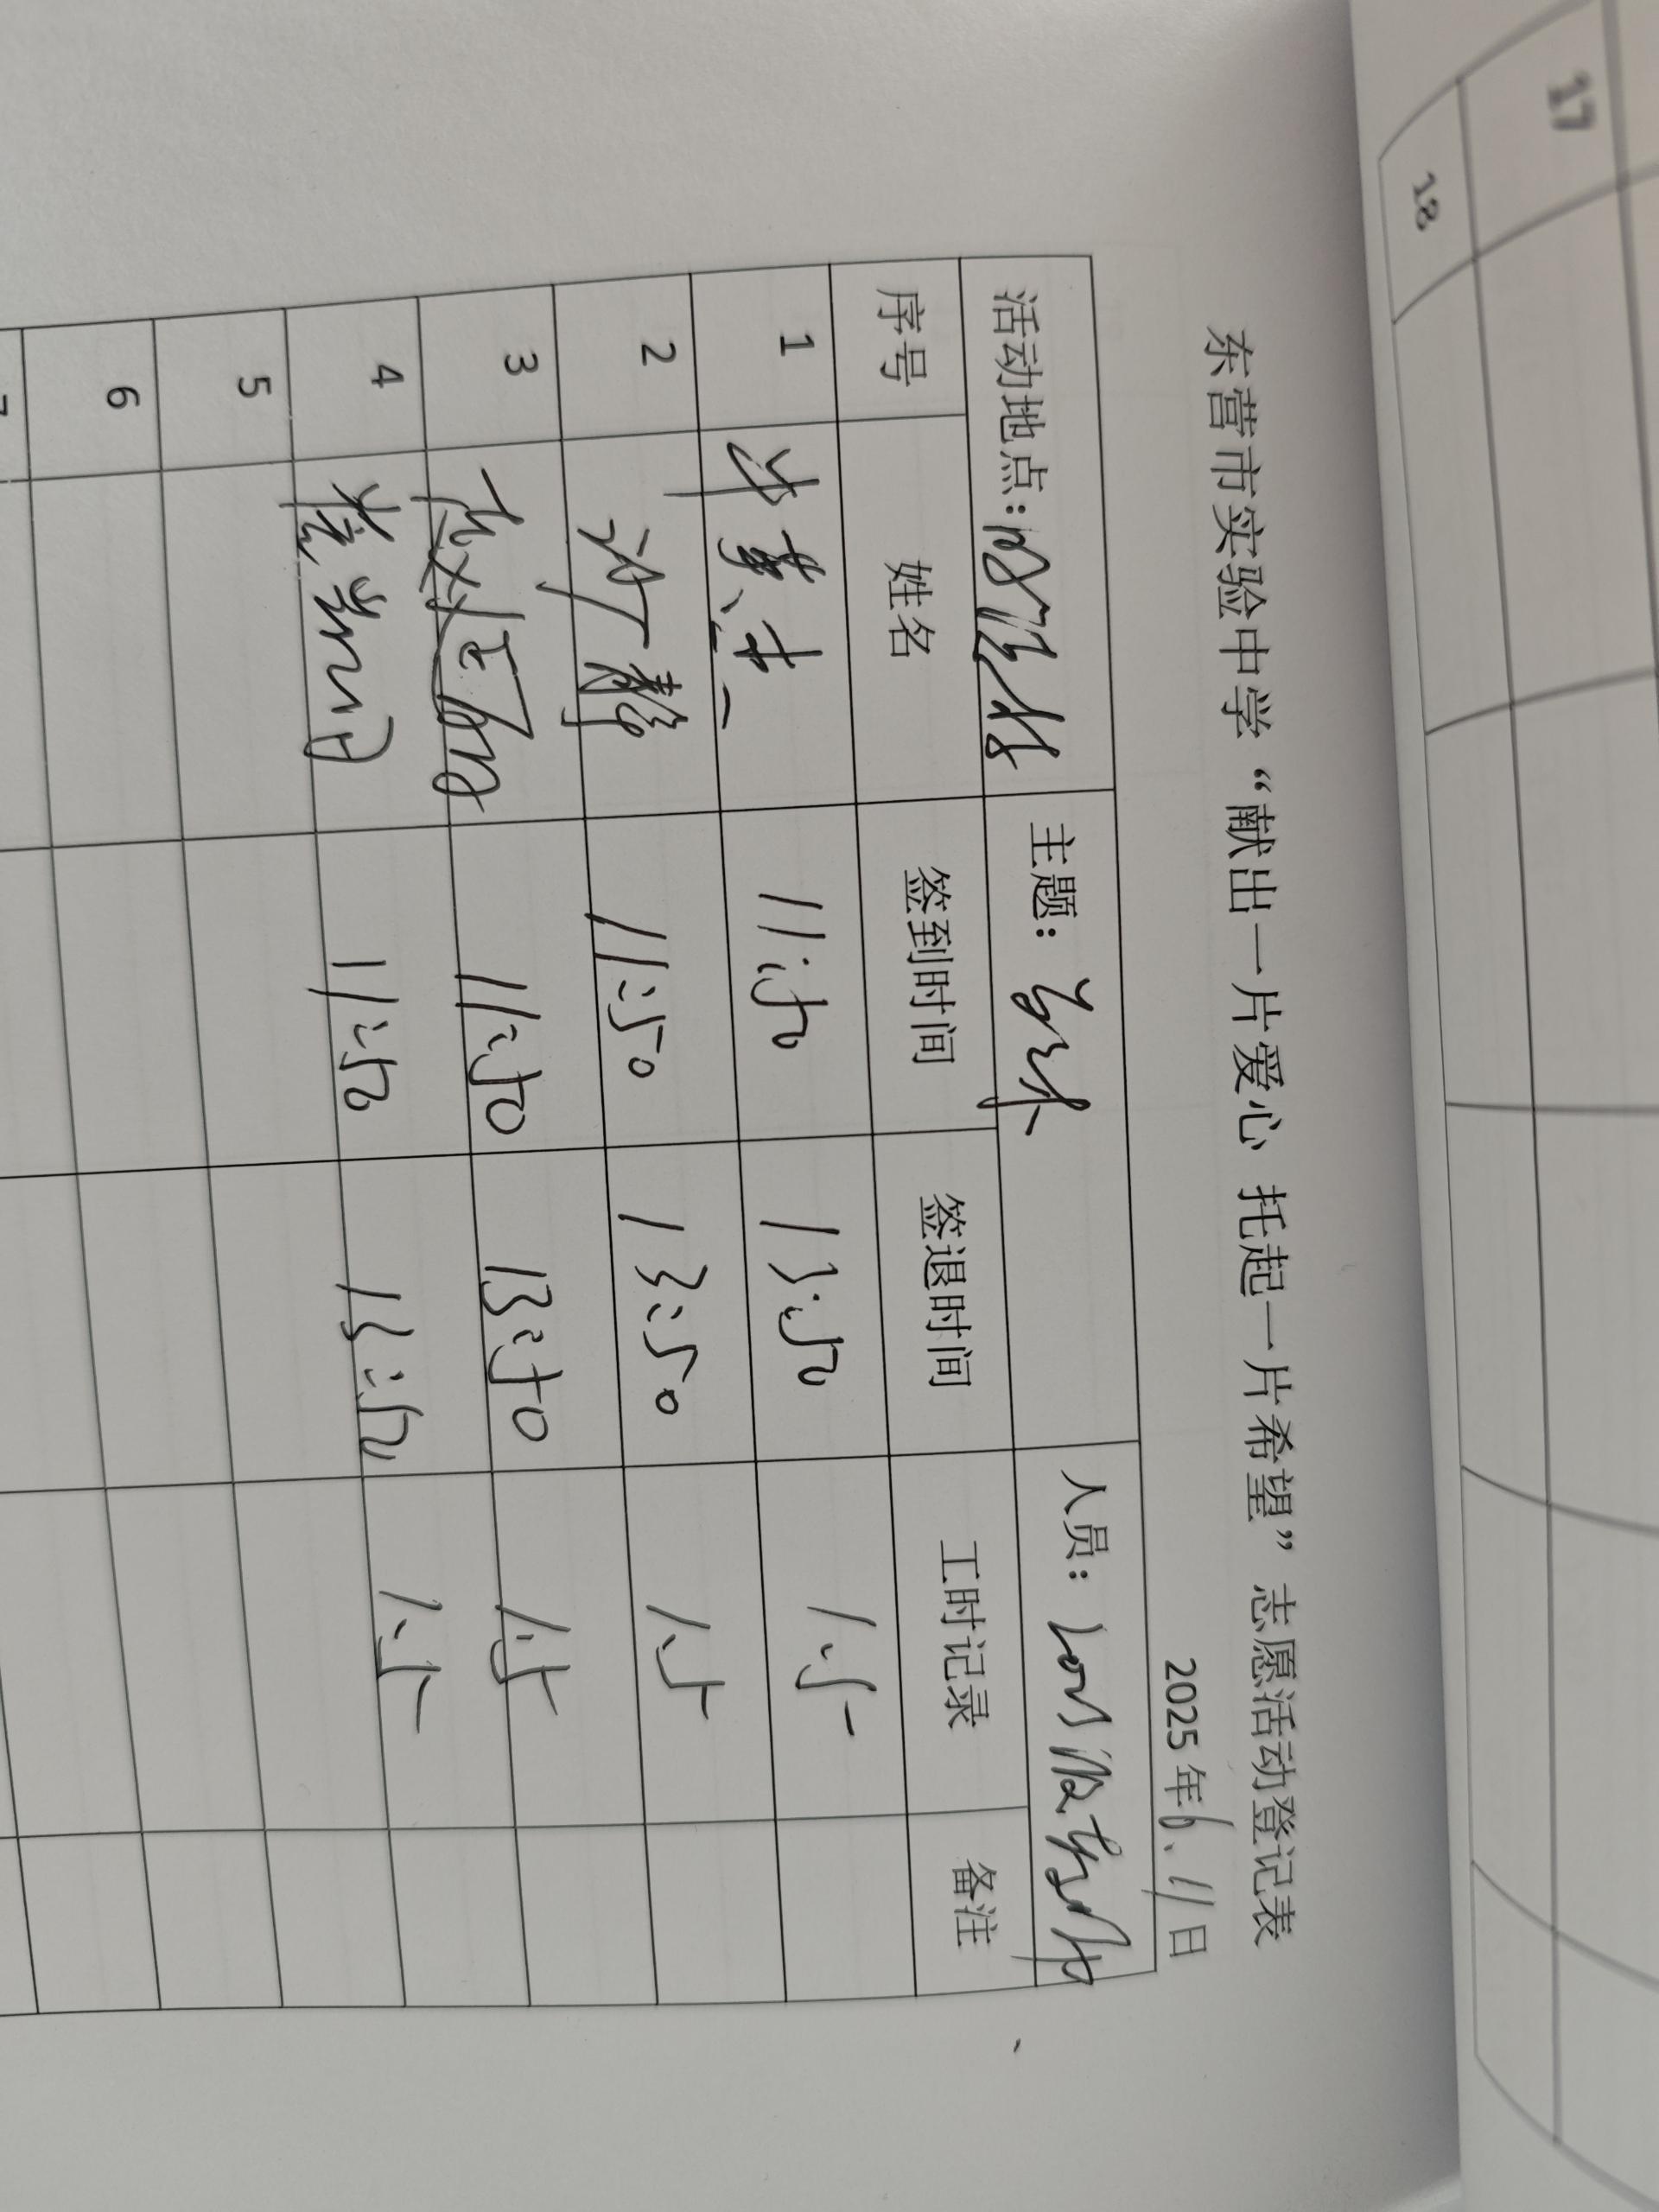 17
18
东营市实验中学“献出一片爱心 托起一片希望”志愿活动登记表
2025年6.11日
活动地点： 主题： 人员：
序号 姓名 签到时间 签退时间 工时记录 备注
1 11:50 13:50 1.5
2 许静 11:50 13:50 1.5
3 11:50 13:50 1.5
4 11:50 13:50 1.5
5
6
7